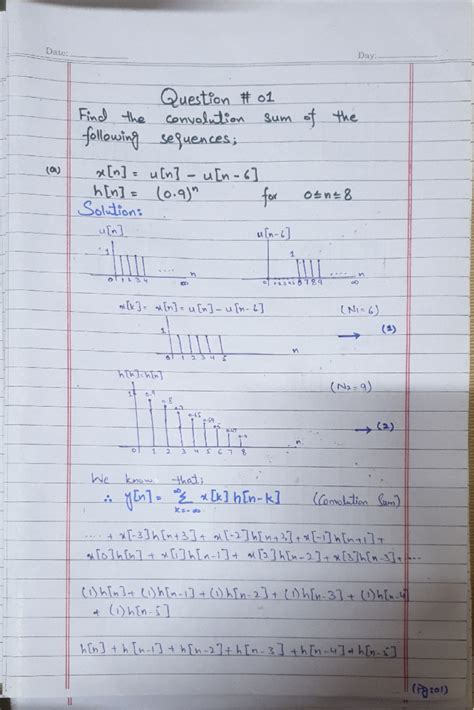 Date:
Day:
Question # 01
Find the convolution sum of the
following sequences;
(a) x[n] = u[n] - u[n-6]
h[n] = (0.9)ⁿ for 0≤n≤8
Solution:
u[n] u[n-6]
1 1
0 1 2 3 4 .... n ∞ 0 1 2 3 4 5 6 7 8 9 .... n ∞
x[k] = x[n] = u[n] - u[n-6] (N₁=6)
1 → (1)
0 1 2 3 4 5 n
h[k]=h[n] (N₂=9)
1 0.9 0.8 0.7
→ (2)
0 1 2 3 4 5 6 7 8 n
We know that;
∴ y[n] = ∞Σk=-∞ x[k] h[n-k] (Convolution Sum)
.... + x[-3]h[n+3] + x[-2]h[n+2] + x[-1]h[n+1] +
x[0]h[n] + x[1]h[n-1] + x[2]h[n-2] + x[3]h[n-3] + ....
(1)h[n] + (1)h[n-1] + (1)h[n-2] + (1)h[n-3] + (1)h[n-4]
+ (1)h[n-5]
h[n] + h[n-1] + h[n-2] + h[n-3] + h[n-4] + h[n-5]
(Pg 201)